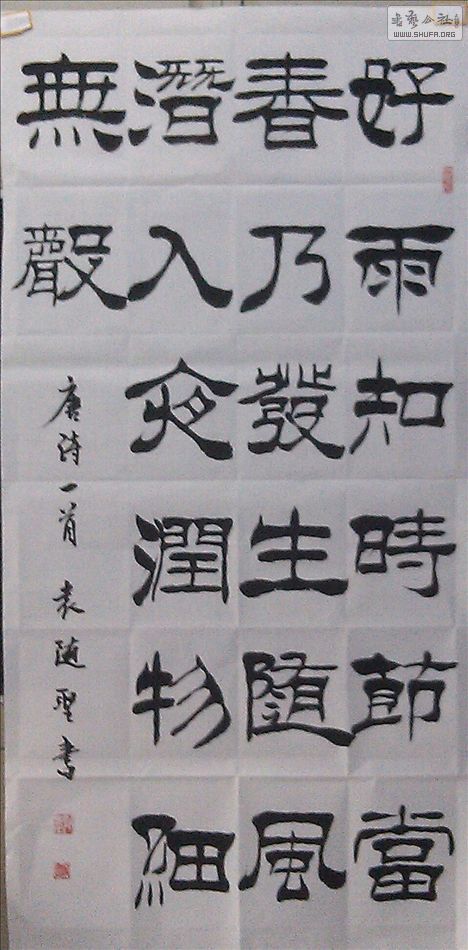 好雨知時節當
春乃發生随風
潛入夜潤物細
無聲
唐诗一首 袁随聖书
书艺公社
WWW.SHUFA.ORG